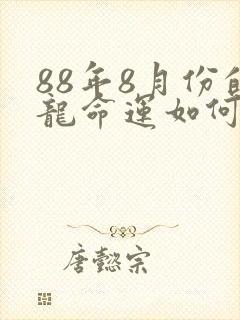 88年8月份
龍命運如何
唐懿宗